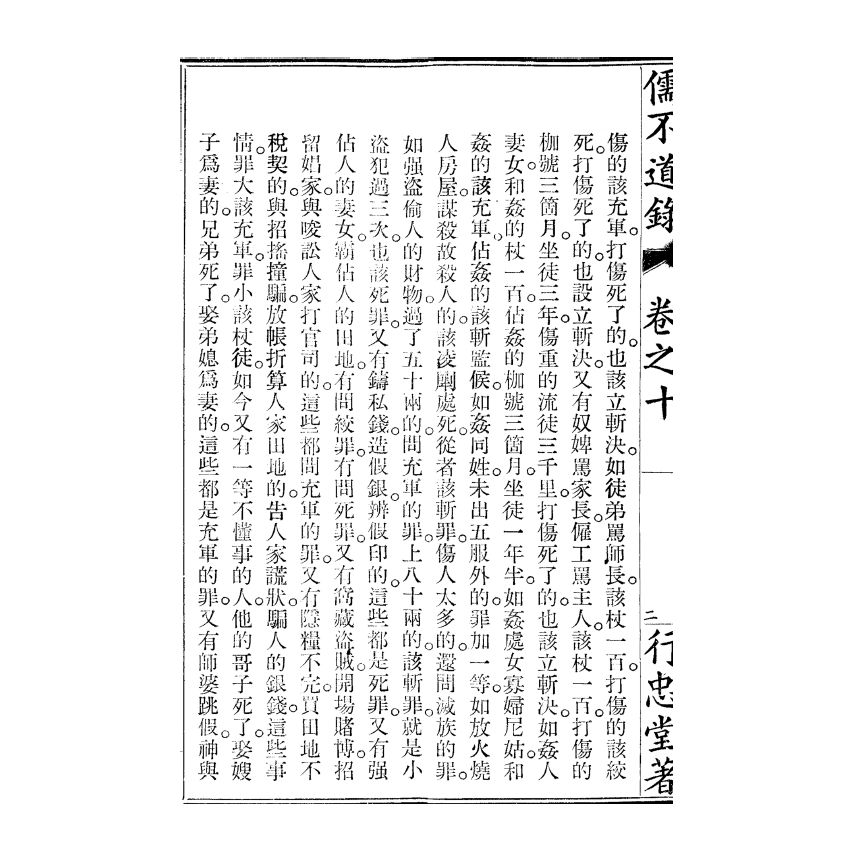 儒不道錄　卷之十　二　行忠堂著
傷的該充軍。打傷死了的。也該立斬決。如徒弟罵師長。該杖一百。打傷的該絞
死。打傷死了的。也設立斬決。又有奴婢罵家長。僱工罵主人。該杖一百。打傷的
枷號三箇月。坐徒三年。傷重的流徒三千里。打傷死了的。也該立斬決。如姦人
妻女。和姦的杖一百。佔姦的枷號三箇月。坐徒一年半。如姦處女寡婦尼姑。和
姦的該充軍。佔姦的該斬監候。如姦同姓。未出五服外的。罪加一等。如放火燒
人房屋。謀殺故殺人的。該凌剮處死。從者該斬罪。傷人太多的。還問滅族的罪。
如强盜偷人的財物。過了五十兩的。問充軍的罪。上八十兩的。該斬罪。就是小
盜犯過三次。也該死罪。又有鑄私錢。造假銀。辨假印的。這些都是死罪。又有强
佔人的妻女。霸佔人的田地。有問絞罪。有問死罪。又有窩藏盜賊。開場賭博。招
留娼家。與唆訟人家打官司的。這些都問充軍的罪。又有隱糧不完。買田地不
稅契的。與招搖撞騙。放帳折算人家田地的。告人家謊狀。騙人的銀錢。這些事
情。罪大該充軍。罪小該杖徒。如今又有一等不懂事的人。他的哥子死了。娶嫂
子爲妻的。兄弟死了。娶弟媳爲妻的。這些都是充軍的罪。又有師婆跳假神。與